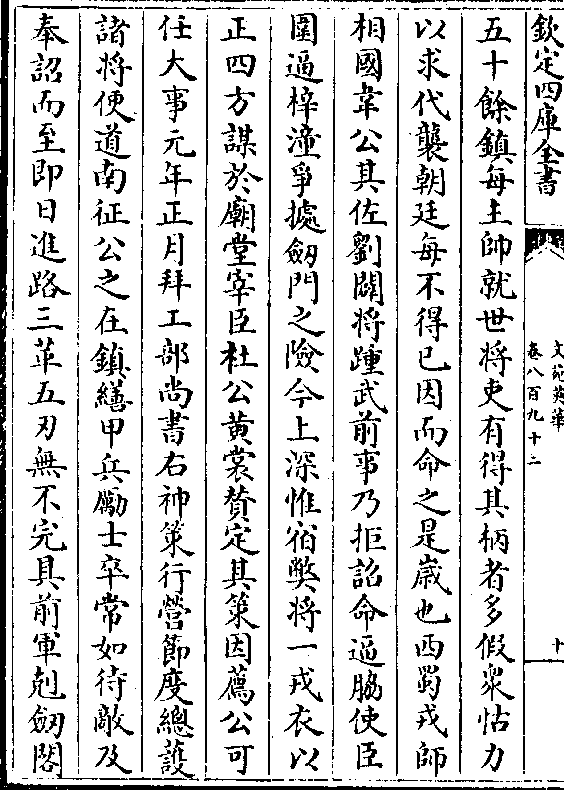 欽定四庫全書
文苑英華
卷八百九十二
十
五十餘鎮每主帥就世將吏有得其柄者多假衆怙力
以求代襲朝廷每不得已因而命之是歲也西蜀戎師
相國韋公其佐劉闢將踵武前事乃拒詔命逼脇使臣
圍逼梓潼爭據劒門之險今上深惟宿弊將一戎衣以
正四方謀於廟堂宰臣杜公黄裳賛定其策因薦公可
任大事元年正月拜工部尚書右神策行營節度總護
諸將便道南征公之在鎮繕甲兵勵士卒常如待敵及
奉詔而至即日進路三革五刃無不完具前軍剋劒閣